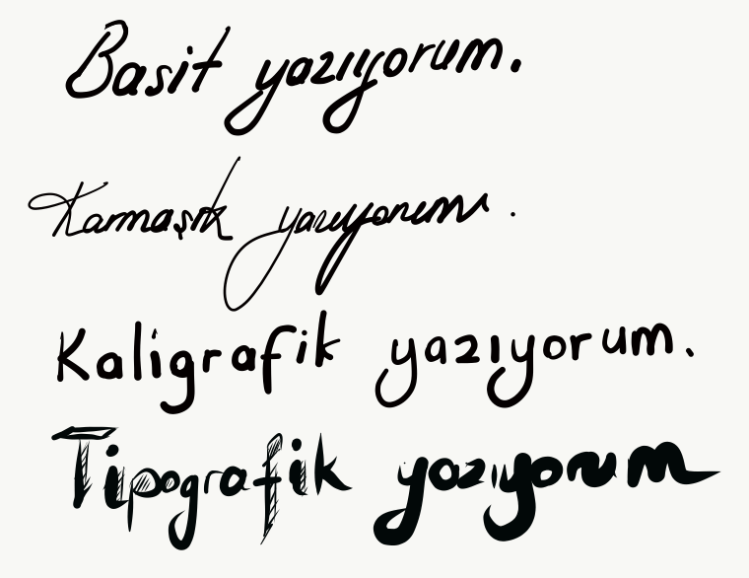 Basit yazıyorum.
Karmaşık yazıyorum.
Kaligrafik yazıyorum.
Tipografik yazıyorum